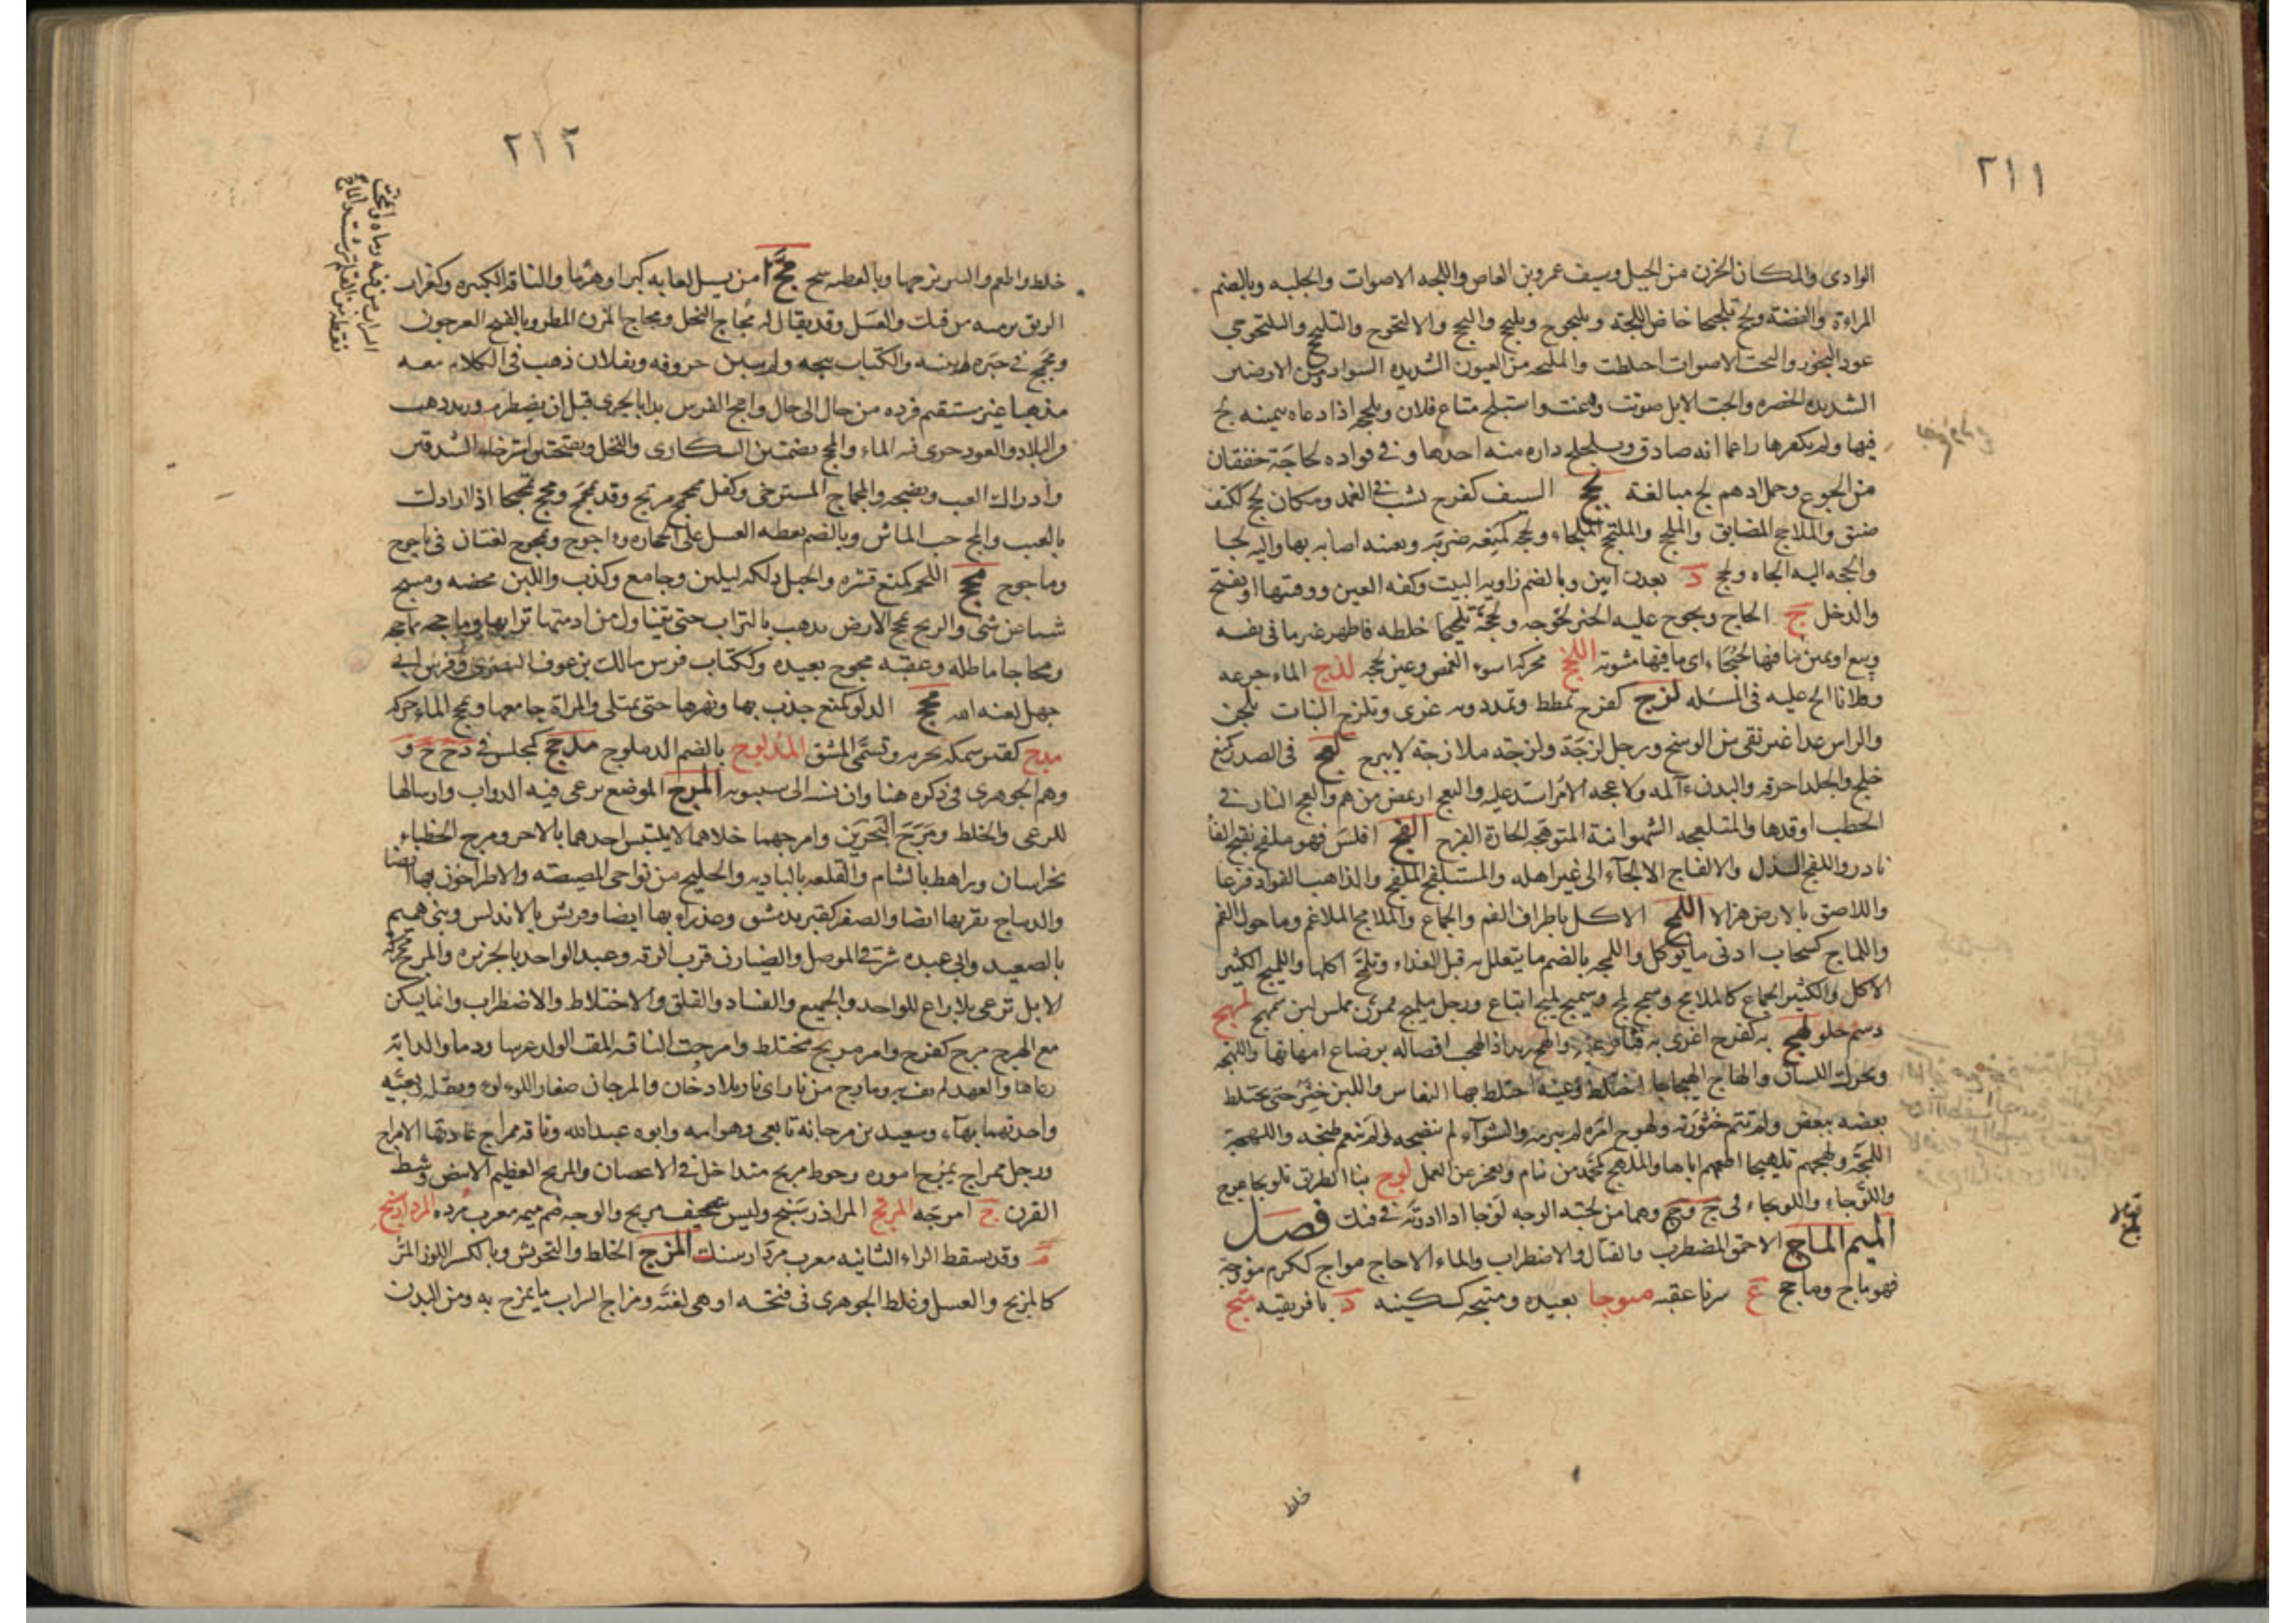 ٢١١
الوادى والمكان الحزن من الجبل وسيف عمرو بن العاص واللجه الاصوات والجلبه وبالضم
المراءة والفضة ولج تلجيجا خاض اللجة ويلنجوج ويلنجج والنج والالنجوج
عود البخور والتجت الاصوات اختلطت والملتجه من العيون الشديده السواد ومن الارضين
الشديده الخضره والجت الابل صوتت ورغت واستلج متاع فلان وتلججه اذا ادعاه بيمينه لج
فيها ولم يكفرها زاعما انه صادق وتلجلج داره منه اخذها و فى فواده لجاجة خفقان
من الجوع وجمل ادهم لج مبالغة لحج السيف كفرح نشب فى الغمد ومكان لحج ككتف
ضيق والملاحج المضايق والملحج والملتحج الملجاء ولحجه كمنعه ضربه وبعينه اصابه بها واليه لجا
والحجه اليه الجاه ولحج د بعدن ابين وبالضم زاويه البيت وكفه العين ووقبتها او يفتح
والدخل ج الحاج ولحوج عليه الخبر لحوجه ولحجه تلحيجا خلطه فاظهر غير ما فى نفسه
وبيع او يمين ما فيها لحيجاء اى ما فيها مثنويه اللخج محركه اسوء الغمص وعين لخجه لذج الماء جرعه
وفلانا الح عليه فى المسئله لزج كفرح تمطط وتمدد وبه غرى وتلزج النبات تلجن
والراس غدا غير نقى من الوسخ ورجل لزجة ولزجه ملازجة لا يبرح لعج فى الصدر كمنع
خلج والجلد احرقه والبدن آلمه ولاعجه الامر اشتد عليه والتعج ارتمض من هم والعج النار فى
الحطب اوقدها والمتلعجه الشهوانية المتوهجه الحارة الفرج الفج افلس فهو ملفج بفتح الفا
نادر واللفج الذل والالفاج الالجاء الى غير اهله والمستلفج الملفج والذاهب الفواد فرقا
واللاصق بالارض هزالا اللمج الاكل باطراف الفم والجماع والملامج الملاغم وما حول الفم
واللماج كسحاب ادنى ما يوكل واللمجه بالضم ما يتعلل به قبل الغداء وتلمج اكلها واللميج الكثير
الاكل والكثير الجماع كالملامج وسمج لمج وسميج لميج اتباع ورجل مملس لبن سمهج لمهج
دسم حلو لهج به كفرح اغرى به فثابر عليه والهج زيد اذا لهجت فصاله برضاع امهاتها واللهجه
ويحرك اللسان والهاج الهيجاجا اختلط وعينه اختلط بها النعاس واللبن خثر حتى يختلط
بعضه ببعض ولم تتم خثورته ولهوج امره لم يبرمه والشواء لم ينضجه او لم ينعم طبخه واللهجه
اللمجه ولهجهم تلهيجا اطعمهم اياها والملهج كمحمد من ينام ويعجز عن العمل لوج بنا الطريق تلويجا عوج
واللوجاء واللويجاء فى ح وج وهما من لجته الوجه لوجا اذا ادرته فى فيك فصل
الميم الماج الاحمق المضطرب والقتال والاضطراب والماء الاجاج مؤج ككرم مؤوجة
فهو ماج وماجج ع سرنا عقبه متوجا بعيده ومتيجه كسكينه د بافريقيه مثج
خلط
٢١٢
خلط واطعم والبير نزحها وبالعطيه سمح مجّ من يسيل لعابه كبرا وهرما والناقه الكبيره وكغراب
الريق ترميه من فيك والعسل وقد يقال له مجاج النحل ومجاج المزن المطر وبالفتح العرجون
ومجمج فى خبره لم يبينه والكتاب ثبجه ولم يبين حروفه وبفلان ذهب فى الكلام معه
مذهبا غير مستقيم فرده من حال الى حال وامج الفرس بدا بالجرى قبل ان يضطرم وزيد ذهب
فى البلاد والعود جرى فيه الماء والمج بضمتين السكارى والنحل وبفتحتين استرخاء الشدقين
وادراك العنب ونضجه والمجماج المسترخى وكفل ممجمج مرتج وقد تمجمج ومجج تمجيجا اذا ارادك
بالعيب والمج حب الماش وبالضم نقطه العسل على الحجاره واجوج ومجوج لغتان فى ياجوج
وماجوج محج اللحم كمنع قشره والحبل دلكه ليلين وجامع وكذب واللبن مخضه ومسح
شيا عن شى والريح تمحج الارض تذهب بالتراب حتى يتناول من ادمتها ترابها وماحجه مماحجه
ومحاجا ماطله وعقبه محوج بعيده وككتاب فرس مالك بن عوف النصرى وفرس ابى
جهل لعنه الله مخج الدلو كمنع جذب بها ونهزها حتى تمتلى والمراة جامعها ومخج الماء حركه
مدج كقبر سمكه بحريه وتسمى المشق المدلوج بالضم الدملوج مذحج كمجلس فى ذ ح ج و
وهم الجوهرى فى ذكره هنا وان نسبه الى سيبويه المرج الموضع ترعى فيه الدواب وارسالها
للرعى والخلط ومرج البحرين وامرجهما خلاهما لا يلتبس احدهما بالاخر ومرج الخطباء
بخراسان وراهط بالشام والقلعه بالباديه والخليج من نواحى المصيصه والاطراخون بها ايضا
والديباج بقربها ايضا والصفر كقبر بدمشق وعذراء بها ايضا وفريش بالاندلس وبنى هميم
بالصعيد وابى عبده شرقى الموصل والضيازن قرب الرقه وعبد الواحد بالجزيره والمرج محركه
الابل ترعى بلا راع للواحد والجميع والفساد والقلق والاختلاط والاضطراب وانما يسكن
مع الهرج مرج كفرح وامر مريج مختلط وامرجت الناقه القت الولد غرسا ودما والدابه
رعاها والعهد لم يف به ومارج من نار اى نار بلا دخان والمرجان صغار اللولو وبقله ربعيه
واحدتهما بهاء وسعيد بن مرجانه تابعى وهو امه وابوه عبدالله وناقه ممراج عادتها الامراج
ورجل ممراج يمزج اموره وخوط مريج متداخل فى الاغصان والمريج العظيم الابيض وسط
القرن ج امرجه المرتج المرداسنج وليس بتصحيف مريج والوجه ضم ميمه معرب مرده المرداسنج
م وقد يسقط الراء الثانيه معرب مردار سنك المزج الخلط والتحريش وبالكسر اللوز المر
كالمزيج والعسل وغلط الجوهرى فى فتحه او هى لغته ومزاج الشراب ما يمزج به ومن البدن